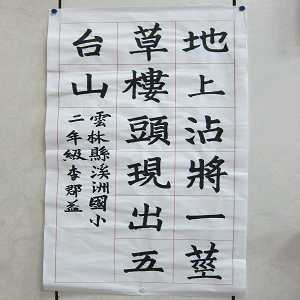 地上沾將一莖
草樓頭現出五
台山
雲林縣溪洲國小
二年級李郡益